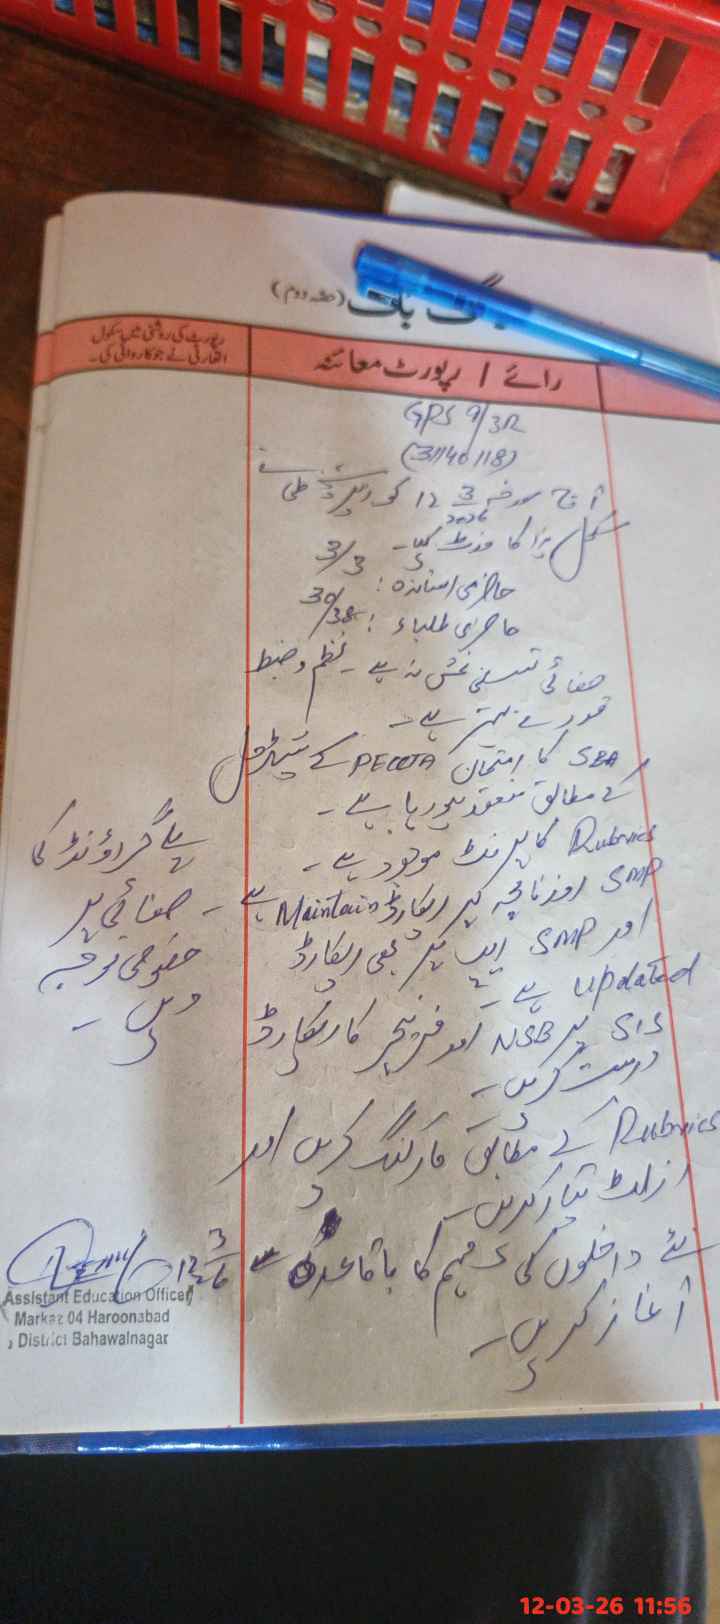 لاگ بک (حصہ دوم)
رائے / رپورٹ معائنہ
رپورٹ کی روشنی میں سکول
اتھارٹی نے جو کاروائی کی۔
GPS 9/3R
(31140118)
آج مورخہ 12 3/2026 کو
سکول ہذا کا وزٹ کیا۔
حاضری اساتذہ: 3/3
حاضری طلباء: 30/38
صفائی تسلی بخش نہ ہے۔ نظم و ضبط
قدرے بہتر ہے۔
SBA کا امتحان PECTA کے شیڈول
کے مطابق منعقد ہو رہا ہے۔
Rubrics کا پرنٹ موجود ہے۔
SMP روزنامچہ پر ریکارڈ Maintain ہے۔
اور SMP ایپ پر بھی ریکارڈ
updated ہے۔
SIS پر NSB اور فرنیچر کا ریکارڈ
درست کریں۔
Rubrics کے مطابق مارکنگ کریں اور
رزلٹ تیار کریں۔
نئے داخلوں کی مہم کا باقاعدگی سے
آغاز کریں۔
پلے گراؤنڈ کی
صفائی پر
خصوصی توجہ
دیں۔
12 3/26
Assistant Education Officer
Markaz 04 Haroonabad
District Bahawalnagar
12-03-26 11:56